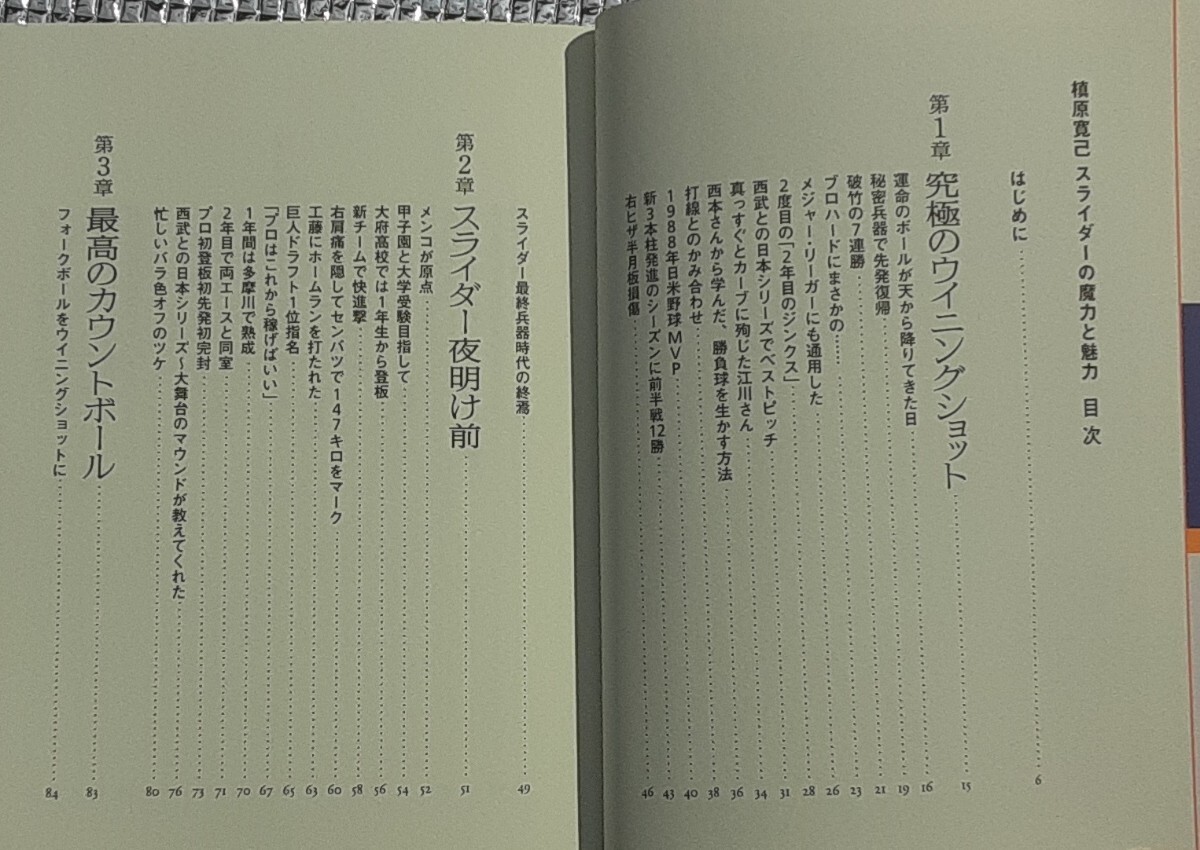 槙原寛己 スライダーの魔力と魅力 目次
はじめに……6
第1章 究極のウイニングショット……15
運命のボールが天から降りてきた日……16
秘密兵器で先発復帰……19
破竹の7連勝……21
ブロハードにまさかの……23
メジャー・リーガーにも通用した……26
2度目の「2年目のジンクス」……28
西武との日本シリーズでベストピッチ……31
真っすぐとカーブに殉じた江川さん……34
西本さんから学んだ、勝負球を生かす方法……36
打線とのかみ合わせ……38
1988年日米野球MVP……40
新3本柱発進のシーズンに前半戦12勝……43
右ヒザ半月板損傷……46
スライダー最終兵器時代の終焉……49
第2章 スライダー夜明け前……51
メンコが原点……52
甲子園と大学受験目指して……54
大府高校では1年生から登板……56
新チームで快進撃……58
右肩痛を隠してセンバツで147キロをマーク……60
工藤にホームランを打たれた……63
巨人ドラフト1位指名……65
「プロはこれから稼げばいい」……67
1年間は多摩川で熟成……70
2年目で両エースと同室……71
プロ初登板初先発初完封……73
西武との日本シリーズ〜大舞台のマウンドが教えてくれた……76
忙しいバラ色オフのツケ……80
第3章 最高のカウントボール……83
フォークボールをウイニングショットに……84